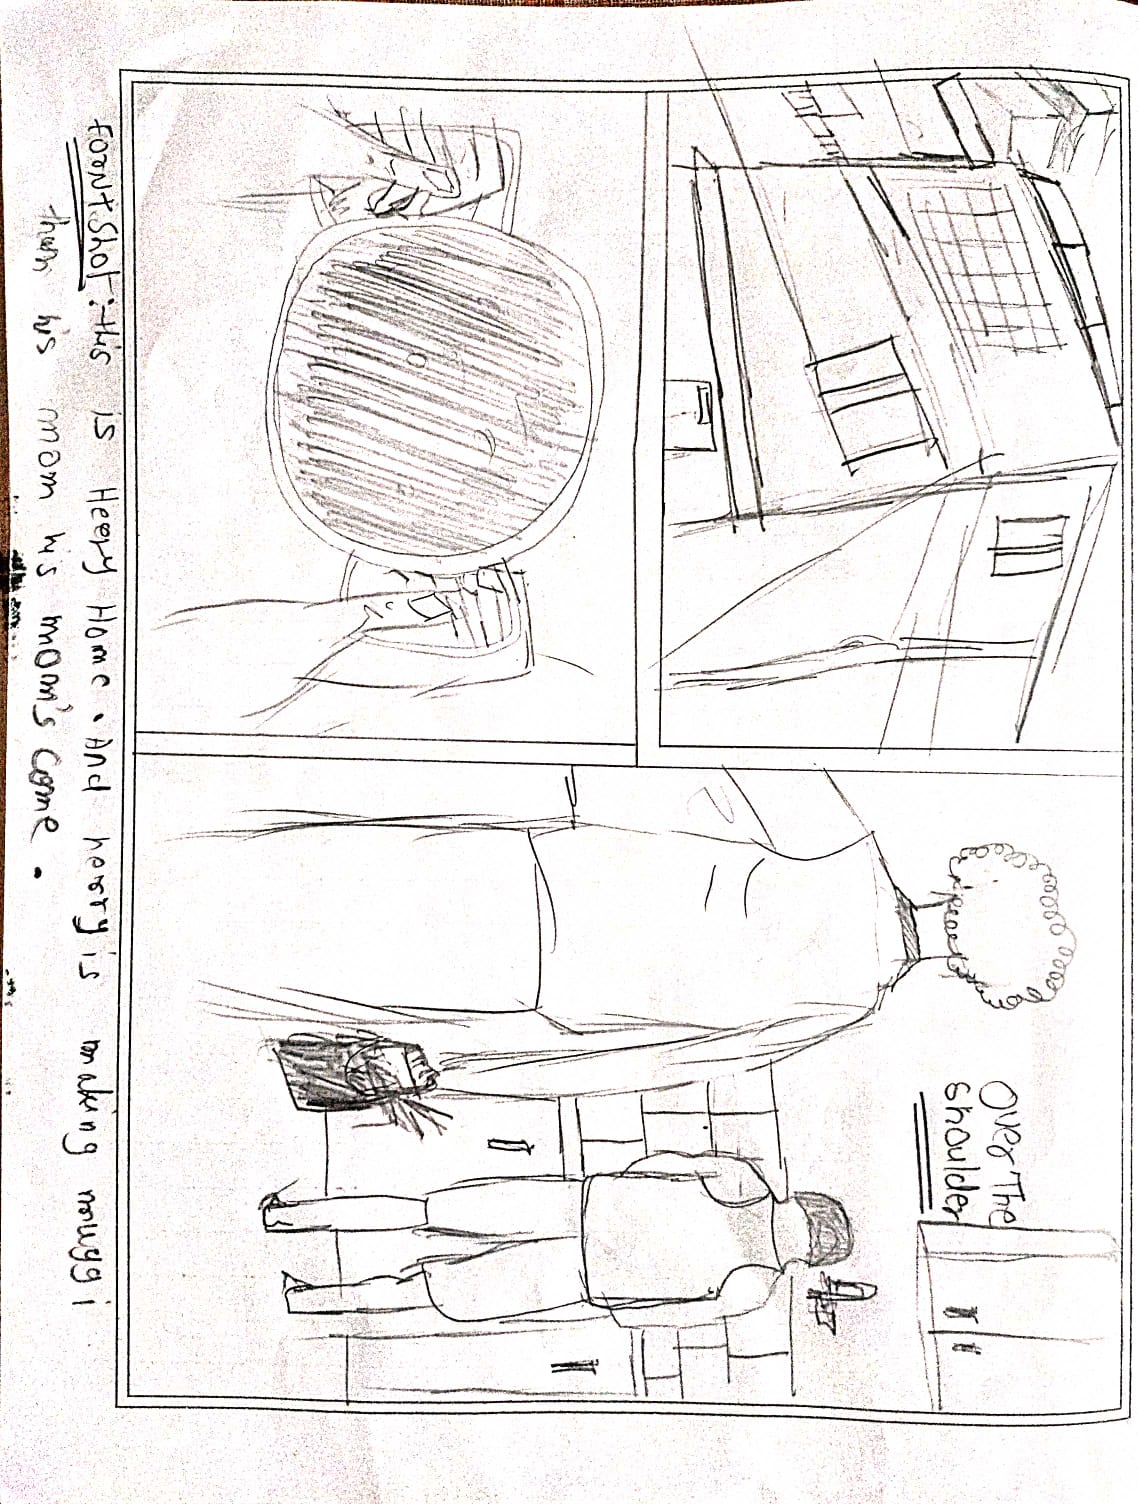 Over The
shoulder
foont shot :- this is Heery Home. And herry is making meggi
then his mom his mom's come.